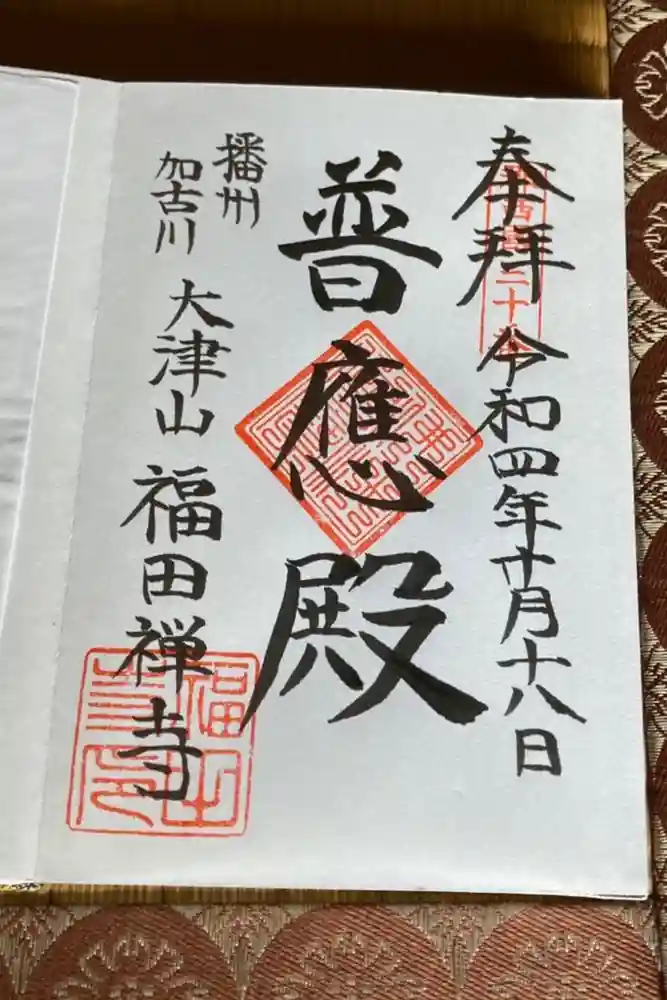 奉拝
令和四年十月十八日
普應殿
播州
加古川
大津山 福田禅寺